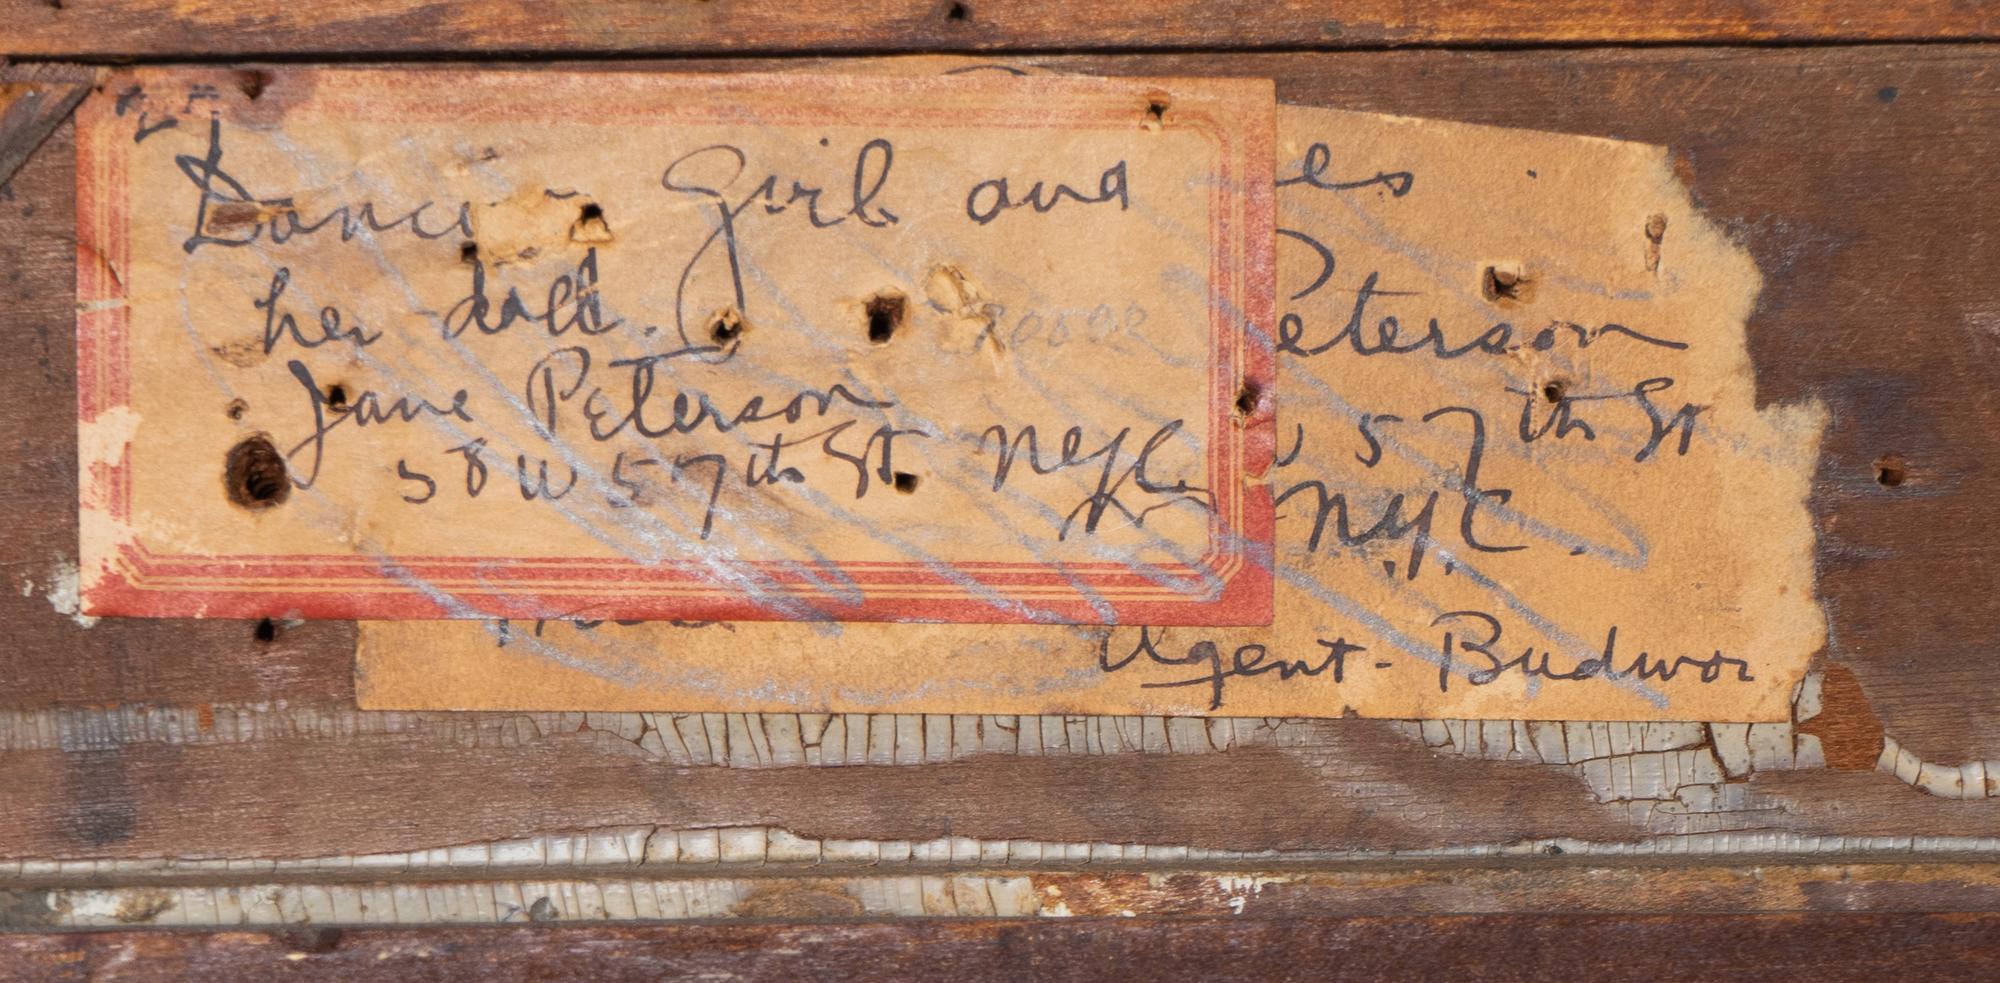 Danci girl and
her doll.
Jane Peterson
58 W 57th St. NYC
es
Peterson
W 57th St
NYC.
Agent - Budwor